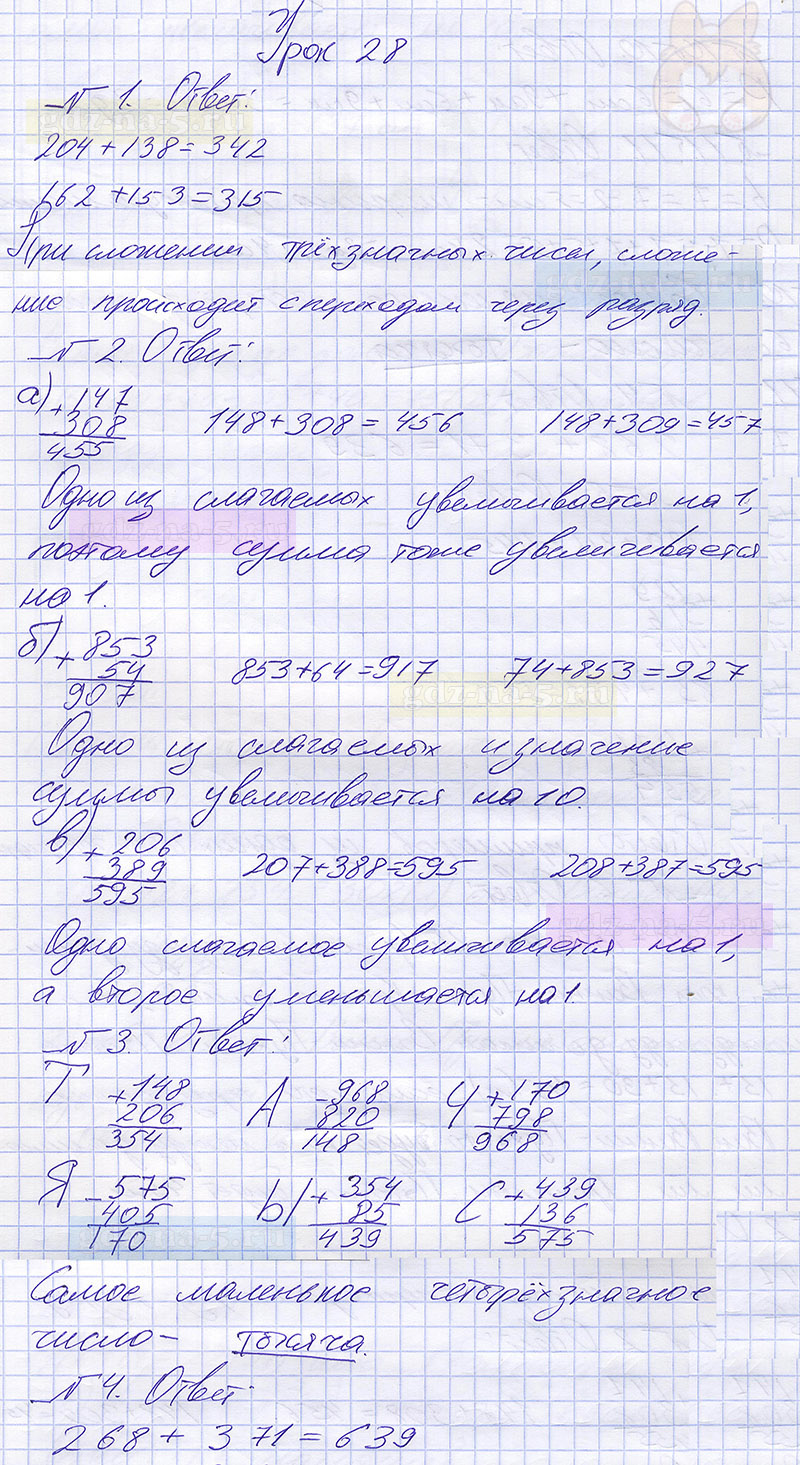 Урок 28
№ 1. Ответ:
204 + 138 = 342
162 + 153 = 315
При сложении трёхзначных чисел, сложе-
ние происходит с переходом через разряд.
№ 2. Ответ:
а) + 147
308
455
148 + 308 = 456
148 + 309 = 457
Одно из слагаемых увеличивается на 1,
поэтому сумма тоже увеличивается
на 1.
б) + 853
54
907
853 + 64 = 917
74 + 853 = 927
Одно из слагаемых и значение
суммы увеличивается на 10.
в) + 206
389
595
207 + 388 = 595
208 + 387 = 595
Одно слагаемое увеличивается на 1,
а второе уменьшается на 1
№ 3. Ответ:
Т + 148
206
354
А - 968
820
148
Ч + 170
798
968
Я - 575
405
170
Ы + 354
85
439
С + 439
136
575
Самое маленькое четырёхзначное
число - тысяча.
№ 4. Ответ:
268 + 371 = 639
gdz-na-5.ru